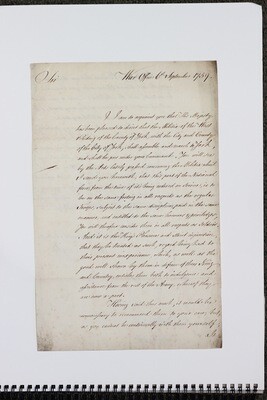 Sir
War Office 6th September 1759.
I am to acquaint you that His Majesty
has been pleased to direct that the Militia of the West
Riding of the County of York, with the City and County
of the City of York, shall assemble and march to
and shall be put under your Command. You will see
by the late
I send you herewith, that this part of the National
force from the time of its being ordered on Service, is to
be on the same footing in all respects as the regular
Troops, subject to the same discipline, paid in the same
manner and entitled to the same honours & priviledges.
You will therefore consider them in all respects as Soldiers
And it is the King's Pleasure and strict injunction
that they be treated as such, regard being had to
their present inexperience which, as well as the
good will shewn by them in defence of their King
and Country, entitles them both to indulgence and
attention from the rest of the Army, whereof they
are now a part.
Having said this much, it would be
unnecessary to recommend them to your care, but
as you cannot be